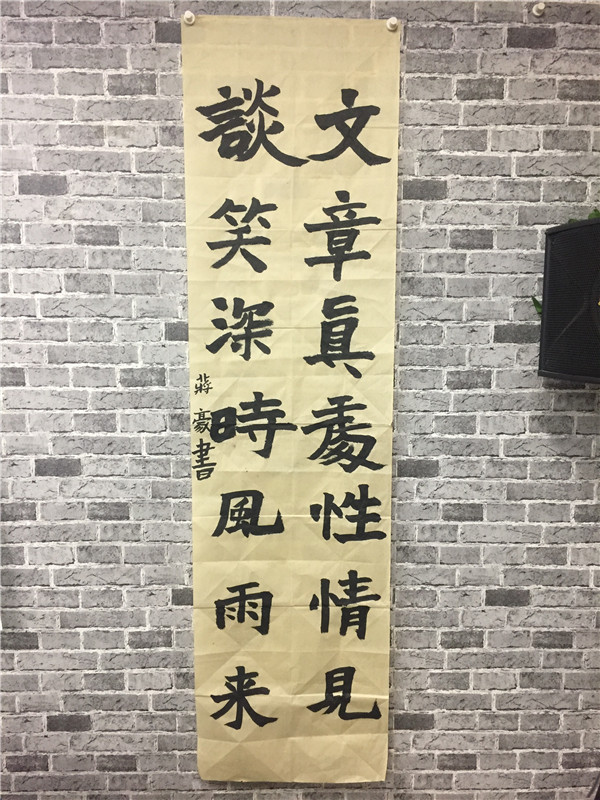 文章真處性情見
談笑深時風雨来
蔣豪書